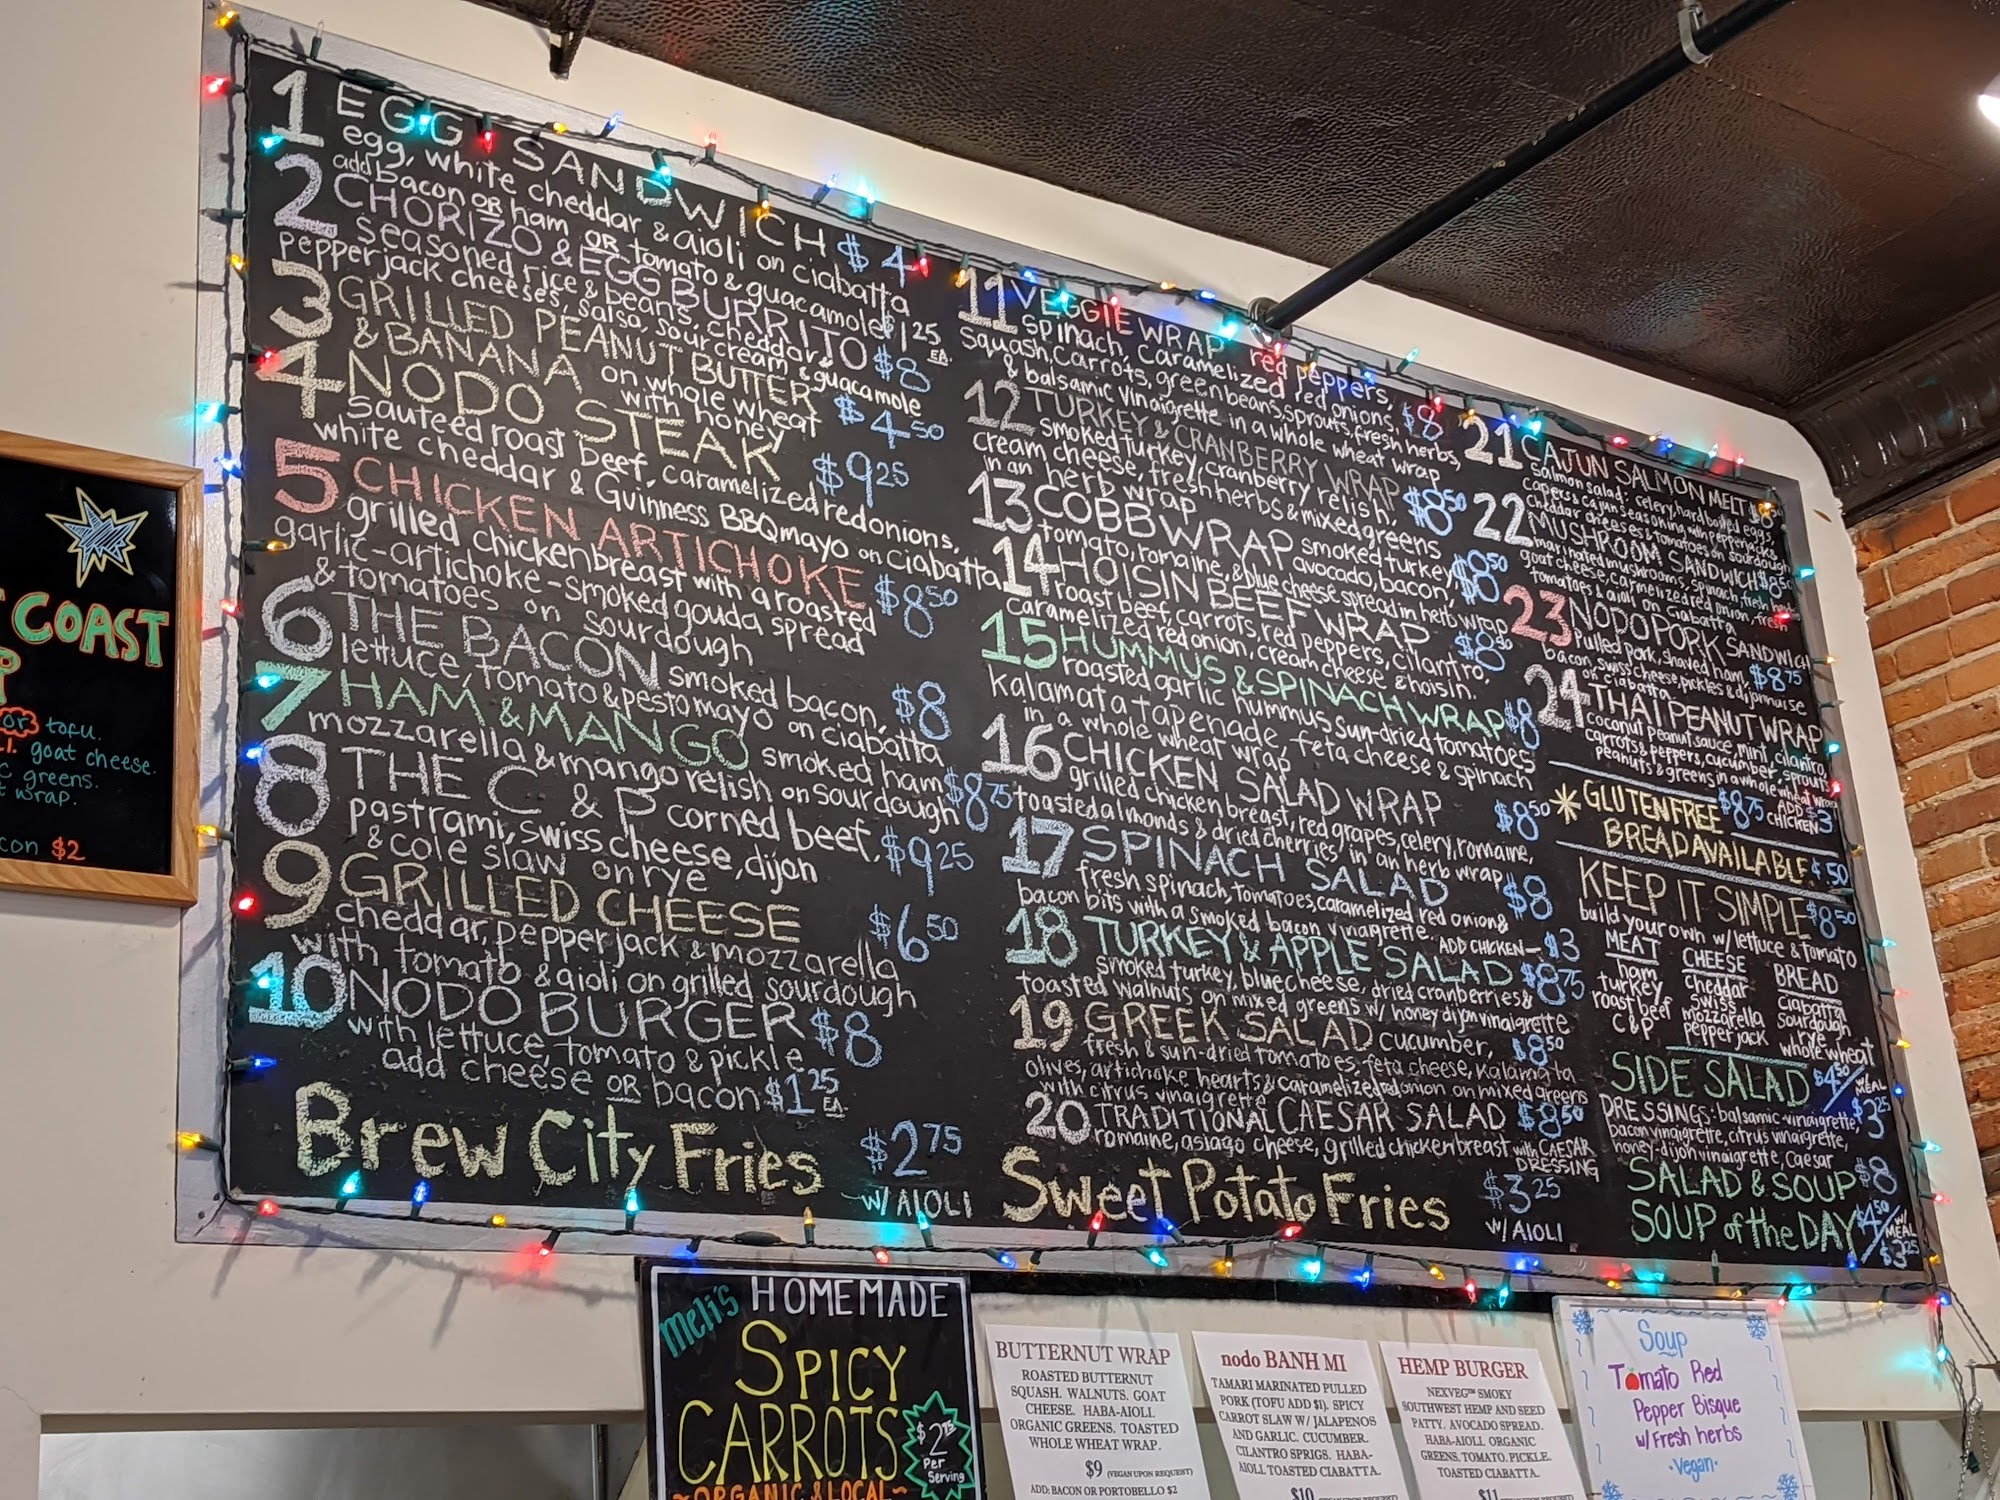 1 EGG SANDWICH $4
egg, white cheddar & aioli on ciabatta
add bacon OR ham OR tomato & guacamole $1 25 EA.
2 CHORIZO & EGG BURRITO $8
seasoned rice & beans, cheddar &
pepperjack cheeses, salsa, sour cream & guacamole
3 GRILLED PEANUT BUTTER
& BANANA on whole wheat $4 50
with honey
4 NODO STEAK $9 25
sauteed roast beef, caramelized red onions,
white cheddar & Guinness BBQ mayo on ciabatta
5 CHICKEN ARTICHOKE $8 50
grilled chicken breast with a roasted
garlic-artichoke-smoked gouda spread
& tomatoes on sourdough
6 THE BACON smoked bacon, $8
lettuce, tomato & pesto mayo on ciabatta
7 HAM & MANGO smoked ham $8 75
mozzarella & mango relish on sourdough
8 THE C & P corned beef, $9 25
pastrami, swiss cheese, dijon
& cole slaw on rye
9 GRILLED CHEESE $6 50
cheddar, pepper jack & mozzarella
with tomato & aioli on grilled sourdough
10 NODO BURGER $8
with lettuce, tomato & pickle
add cheese OR bacon $1 25 EA.
Brew City Fries $2 75
w/ AIOLI
11 VEGGIE WRAP red peppers,
spinach, caramelized red onions, $8
squash, carrots, green beans, sprouts, fresh herbs,
& balsamic vinaigrette in a whole wheat wrap
12 TURKEY & CRANBERRY WRAP $8 50
smoked turkey, cranberry relish,
cream cheese, fresh herbs & mixed greens
in an herb wrap
13 COBB WRAP smoked turkey, $8 50
avocado, bacon,
tomato, romaine, & blue cheese spread in herb wrap
14 HOISIN BEEF WRAP $8 50
roast beef, carrots, red peppers, cilantro,
caramelized red onion, cream cheese & hoisin.
15 HUMMUS & SPINACH WRAP $8
roasted garlic hummus sun-dried tomatoes
Kalamata tapenade, feta cheese & spinach
in a whole wheat wrap
16 CHICKEN SALAD WRAP $8 50
grilled chicken breast, red grapes, celery, romaine,
toasted almonds & dried cherries in an herb wrap
17 SPINACH SALAD $8
fresh spinach, tomatoes, caramelized red onion &
bacon bits with a smoked bacon vinaigrette ADD CHICKEN- $3
18 TURKEY & APPLE SALAD $8 75
smoked turkey, blue cheese, dried cranberries &
toasted walnuts on mixed greens w/ honey dijon vinaigrette
19 GREEK SALAD cucumber, $8 50
fresh & sun-dried tomatoes, feta cheese, Kalamata
olives, artichoke hearts & caramelized red onion on mixed greens
with citrus vinaigrette
20 TRADITIONAL CAESAR SALAD $8 50
romaine, asiago cheese, grilled chicken breast with CAESAR
DRESSING
Sweet Potato Fries $3 25
w/ AIOLI
21 CAJUN SALMON MELT $8
salmon salad: celery, hard boiled eggs,
capers & cajun seasoning with pepperjack &
cheddar cheeses & tomatoes on sourdough
22 MUSHROOM SANDWICH $8 50
marinated mushrooms, spinach, fresh herb
goat cheese, caramelized red onion, fresh
tomatoes & aioli on ciabatta
23 NODO PORK SANDWICH
pulled pork, shaved ham, $8 75
bacon, swiss cheese, pickles & dijonnaise
on ciabatta
24 THAI PEANUT WRAP
coconut peanut sauce, mint, cilantro,
carrots & peppers, cucumber, sprouts,
peanuts & greens in a whole wheat wrap
$8 75 ADD CHICKEN $3
* GLUTEN FREE
BREAD AVAILABLE $ 50
KEEP IT SIMPLE $8 50
build your own w/ lettuce & tomato
MEAT CHEESE BREAD
ham cheddar ciabatta
turkey swiss sourdough
roast beef mozzarella rye
C&P pepper jack whole wheat
SIDE SALAD $4 50 / w/ MEAL $3 25
DRESSINGS- balsamic-vinaigrette,
bacon vinaigrette, citrus vinaigrette,
honey-dijon vinaigrette, caesar
SALAD & SOUP $8
SOUP of the DAY $4 50 / w/ MEAL $3 25
COAST
or tofu.
goat cheese.
greens.
wrap.
$2
Meli's HOMEMADE
SPICY
CARROTS
$2 75 Per Serving
~ORGANIC & LOCAL~
BUTTERNUT WRAP
ROASTED BUTTERNUT
SQUASH. WALNUTS. GOAT
CHEESE. HABA-AIOLI.
ORGANIC GREENS. TOASTED
WHOLE WHEAT WRAP.
$9 (VEGAN UPON REQUEST)
ADD: BACON OR PORTOBELLO $2
nodo BANH MI
TAMARI MARINATED PULLED
PORK (TOFU ADD $1). SPICY
CARROT SLAW W/ JALAPENOS
AND GARLIC. CUCUMBER.
CILANTRO SPRIGS. HABA-
AIOLI TOASTED CIABATTA.
$10
HEMP BURGER
NEXVEG™ SMOKY
SOUTHWEST HEMP AND SEED
PATTY. AVOCADO SPREAD.
HABA-AIOLI. ORGANIC
GREENS. TOMATO. PICKLE.
TOASTED CIABATTA.
$11
Soup
Tomato Red
Pepper Bisque
w/ Fresh herbs
-Vegan-